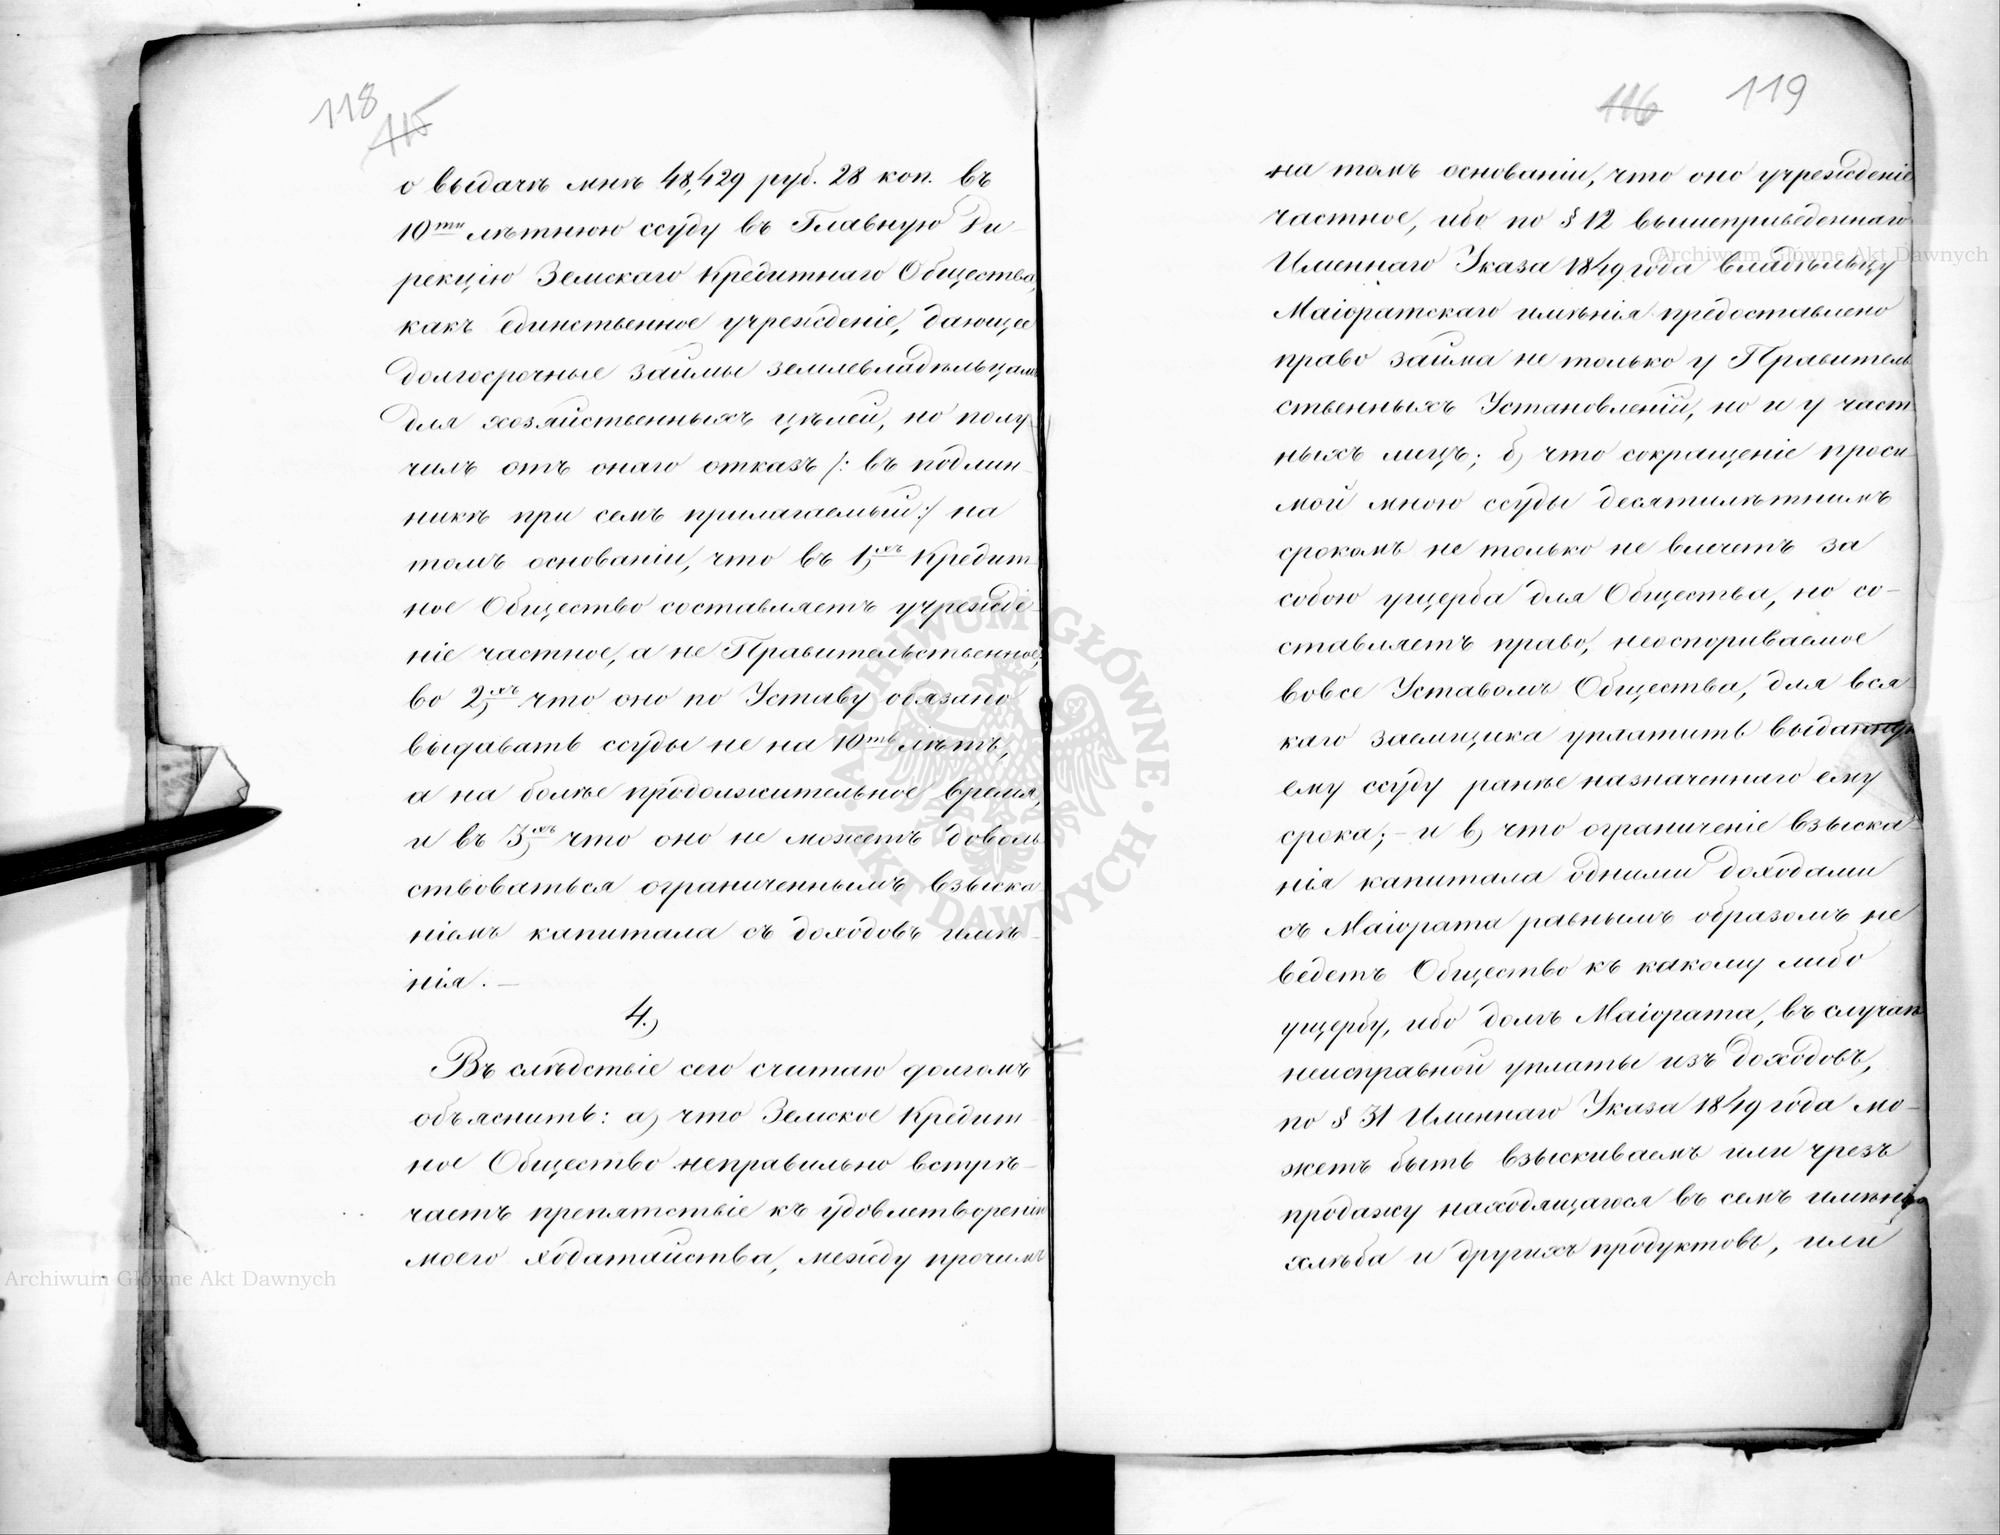 118
115
о выдачѣ мнѣ 48,429 руб. 28 коп. въ
10ти лѣтнюю ссуду въ Главную Ди-
рекцію Земскаго Кредитнаго Общества,
какъ единственное учрежденіе, дающее
долгосрочные займы землевладѣльцамъ
для хозяйственныхъ цѣлей, но полу-
чилъ отъ онаго отказъ /: въ подлин-
никѣ при семъ прилагаемый :/ на
томъ основаніи, что въ 1,хъ Кредит-
ное Общество составляетъ учрежде-
ніе частное, а не Правительственное;
во 2,хъ что оно по Уставу обязано
выдавать ссуды не на 10ть лѣтъ,
а на болѣе продолжительное время,
и въ 3,хъ что оно не можетъ доволь-
ствоваться ограниченнымъ взыска-
ніемъ капитала съ доходовъ имѣ-
нія. —
4.)
Въ слѣдствіе сего считаю долгомъ
объяснить: а) что Земское Кредит-
ное Общество неправильно встрѣ-
чаетъ препятствіе къ удовлетворенію
моего ходатайства, между прочимъ
116 119
на томъ основаніи, что оно учрежденіе
частное, ибо по § 12 вышеприведеннаго
Именнаго Указа 1849 года владѣльцу
Маіоратскаго имѣнія предоставлено
право займа не только у Правитель-
ственныхъ Установленій, но и у част-
ныхъ лицъ; б) что сокращеніе проси-
мой мною ссуды десятилѣтнимъ
срокомъ не только не влечетъ за
собою ущерба для Общества, но со-
ставляетъ право, неоспориваемое
вовсе Уставомъ Общества, для вся-
каго заемщика уплатить выданную
ему ссуду ранѣе назначеннаго ему
срока; — и в) что ограниченіе взыска-
нія капитала одними доходами
съ Маіората равнымъ образомъ не
ведетъ Общество къ какому либо
ущербу, ибо долгъ Маіората, въ случаѣ
неисправной уплаты изъ доходовъ,
по § 31 Именнаго Указа 1849 года мо-
жетъ быть взыскиваемъ или чрезъ
продажу находящагося въ семъ имѣніи
хлѣба и другихъ продуктовъ, или
ARCHIWUM GŁÓWNE · AKT DAWNYCH ·
Archiwum Główne Akt Dawnych
Archiwum Główne Akt Dawnych